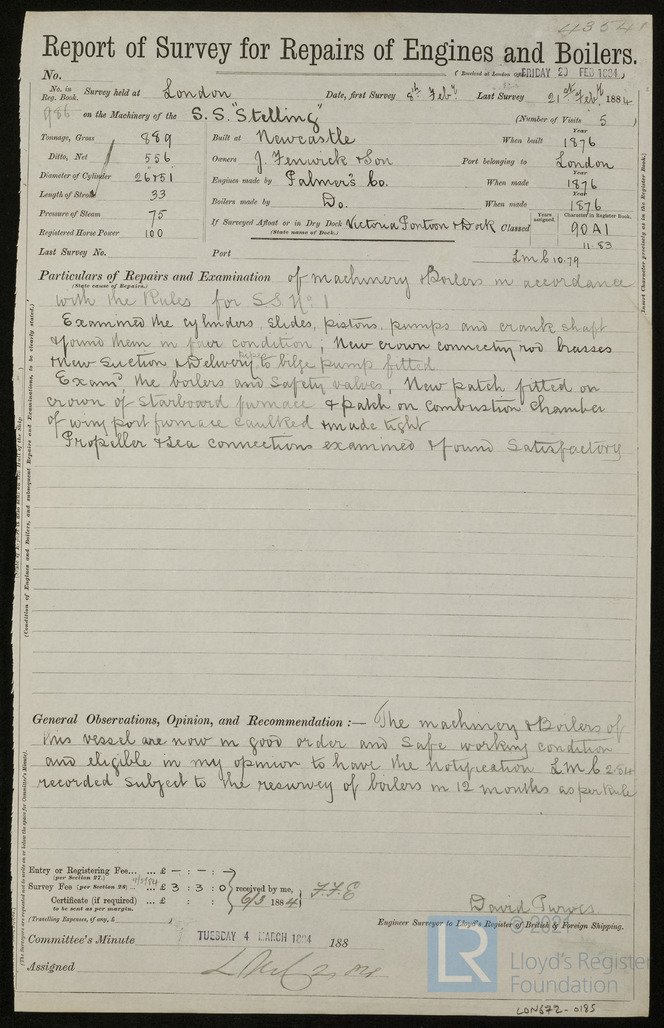 43541
Report of Survey for Repairs of Engines and Boilers.
No. (Received at London Office FRIDAY 29 FEB 1884)
No. in Reg. Book. 986 Survey held at London Date, first Survey 8th Feby Last Survey 21st Feby 1884
on the Machinery of the S.S. "Stelling" (Number of Visits 5)
Tonnage, Gross 889 Built at Newcastle When built Year 1876
Ditto, Net 556 Owners J. Fenwick & Son Port belonging to London
Diameter of Cylinder 26 & 51 Engines made by Palmer's Co. When made Year 1876
Length of Stroke 33 Boilers made by Do. When made Year 1876
Pressure of Steam 75 If Surveyed Afloat or in Dry Dock Victoria Pontoon & Dock Classed Years assigned. Character in Register Book. 90 A1
(State name of Dock.)
Registered Horse Power 100 11.83
Last Survey No. Port LMC 10.79
Particulars of Repairs and Examination of machinery & Boilers in accordance
(State cause of Repairs.)
with the Rules for S.S. No. 1
Examined the cylinders, slides, pistons, pumps and crank shaft
& found them in fair condition; New crown connecting rod brasses
& New Suction & Delivery pipes to bilge pump fitted
Examd the boilers and safety valves, New patch fitted on
crown of starboard furnace & patch on combustion chamber
of wing port furnace caulked & made tight
Propeller & sea connections examined & found Satisfactory
(Condition of Engines and Boilers, and subsequent Repairs and Examinations, to be clearly stated.)
Insert Character precisely as in the Register Book.)
General Observations, Opinion, and Recommendation :— The machinery & Boilers of
this vessel are now in good order and safe working condition
and eligible in my opinion to have the notification LMC 2.84
recorded subject to the resurvey of boilers in 12 months as per Rule
(The Surveyors are requested not to write on or below the space for Committee's Minute).
Entry or Registering Fee... ... £ - : - : -
(per Section 27.) 4/3/84
Survey Fee (per Section 28) ... ... £ 3 : 3 : 0 received by me,
Certificate (if required) ... £ : : 6/3 1884
to be sent as per margin.
(Travelling Expenses, if any, £ )
David Purves
Engineer Surveyor to Lloyd's Register of British & Foreign Shipping.
Committee's Minute TUESDAY 4 MARCH 1884 188
Assigned LMC 2.84
© 2021
LR
Lloyd's Register
Foundation
LON672-0185